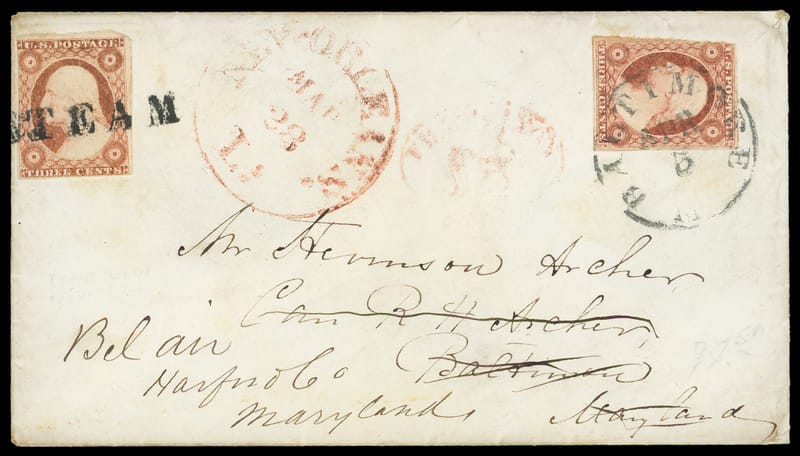 U.S. POSTAGE
THREE CENTS
STEAM
NEW-ORLEANS
MAR
28
La.
U.S. POSTAGE
THREE CENTS
BALTIMORE
APR
5
Mr Stevenson Archer
Care R H Archer,
Baltimore
Maryland
Bel air
Harford Co
Maryland